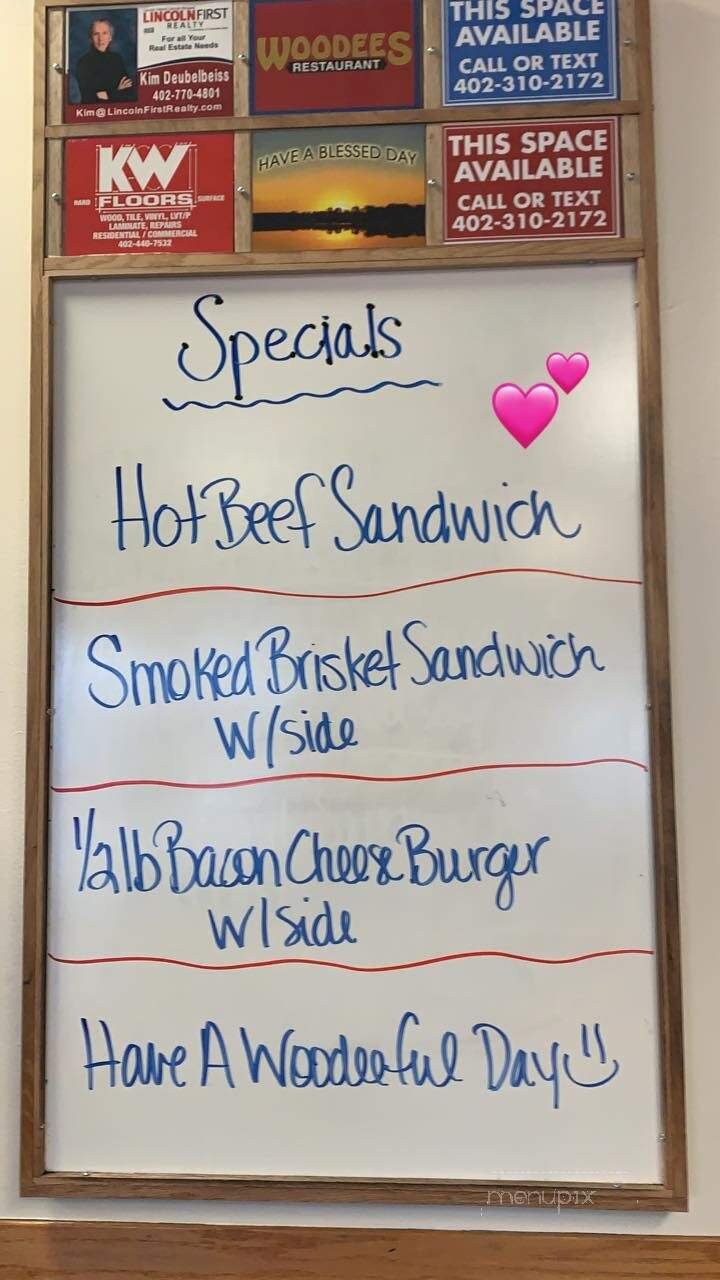 LINCOLN FIRST
REALTY
For all Your
Real Estate Needs
Kim Deubelbeiss
402-770-4801
Kim@LincolnFirstRealty.com
WOODEES
RESTAURANT
THIS SPACE
AVAILABLE
CALL OR TEXT
402-310-2172
KW
HARD FLOORS SURFACE
WOOD, TILE, VINYL, LVT/P
LAMINATE, REPAIRS
RESIDENTIAL / COMMERCIAL
402-440-7532
HAVE A BLESSED DAY
THIS SPACE
AVAILABLE
CALL OR TEXT
402-310-2172
Specials
Hot Beef Sandwich
Smoked Brisket Sandwich
W/side
1/2 lb Bacon Cheese Burger
W/side
Have A Woodeeful Day
menupix